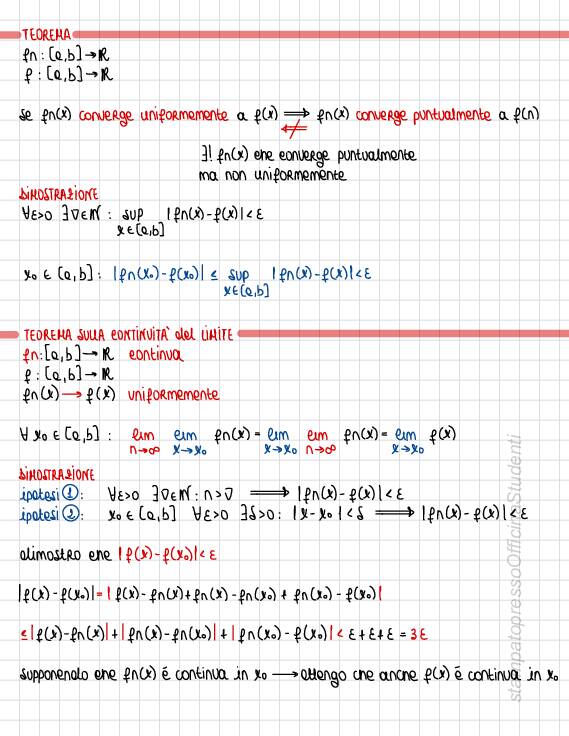 TEOREMA
fn: [a,b] → R
f: [a,b] → R
se fn(x) converge uniformemente a f(x) ⟹ fn(x) converge puntualmente a f(n)
⟸̸
∃! fn(x) che converge puntualmente
ma non uniformemente
DIMOSTRAZIONE
∀ε>0 ∃ν∈N : sup |fn(x)-f(x)|<ε
x∈[a,b]
x₀ ∈ [a,b]: |fn(x₀)-f(x₀)| ≤ sup |fn(x)-f(x)|<ε
x∈[a,b]
TEOREMA SULLA CONTINUITÀ del LIMITE
fn:[a,b] → R continua
f: [a,b] → R
fn(x) → f(x) uniformemente
∀ x₀ ∈ [a,b] : lim lim fn(x) = lim lim fn(x) = lim f(x)
n→∞ x→x₀ x→x₀ n→∞ x→x₀
DIMOSTRAZIONE
ipotesi ①: ∀ε>0 ∃ν∈N: n>ν ⟹ |fn(x)-f(x)|<ε
ipotesi ②: x₀ ∈ [a,b] ∀ε>0 ∃δ>0: |x-x₀|<δ ⟹ |fn(x)-f(x)|<ε
dimostro che |f(x)-f(x₀)|<ε
|f(x)-f(x₀)|=| f(x)-fn(x)+fn(x)-fn(x₀)+ fn(x₀)-f(x₀)|
≤|f(x)-fn(x)|+|fn(x)-fn(x₀)|+|fn(x₀)-f(x₀)|< ε+ε+ε = 3ε
supponendo che fn(x) é continua in x₀ → ottengo che anche f(x) é continua in x₀
stampatopressoOfficinaStudenti